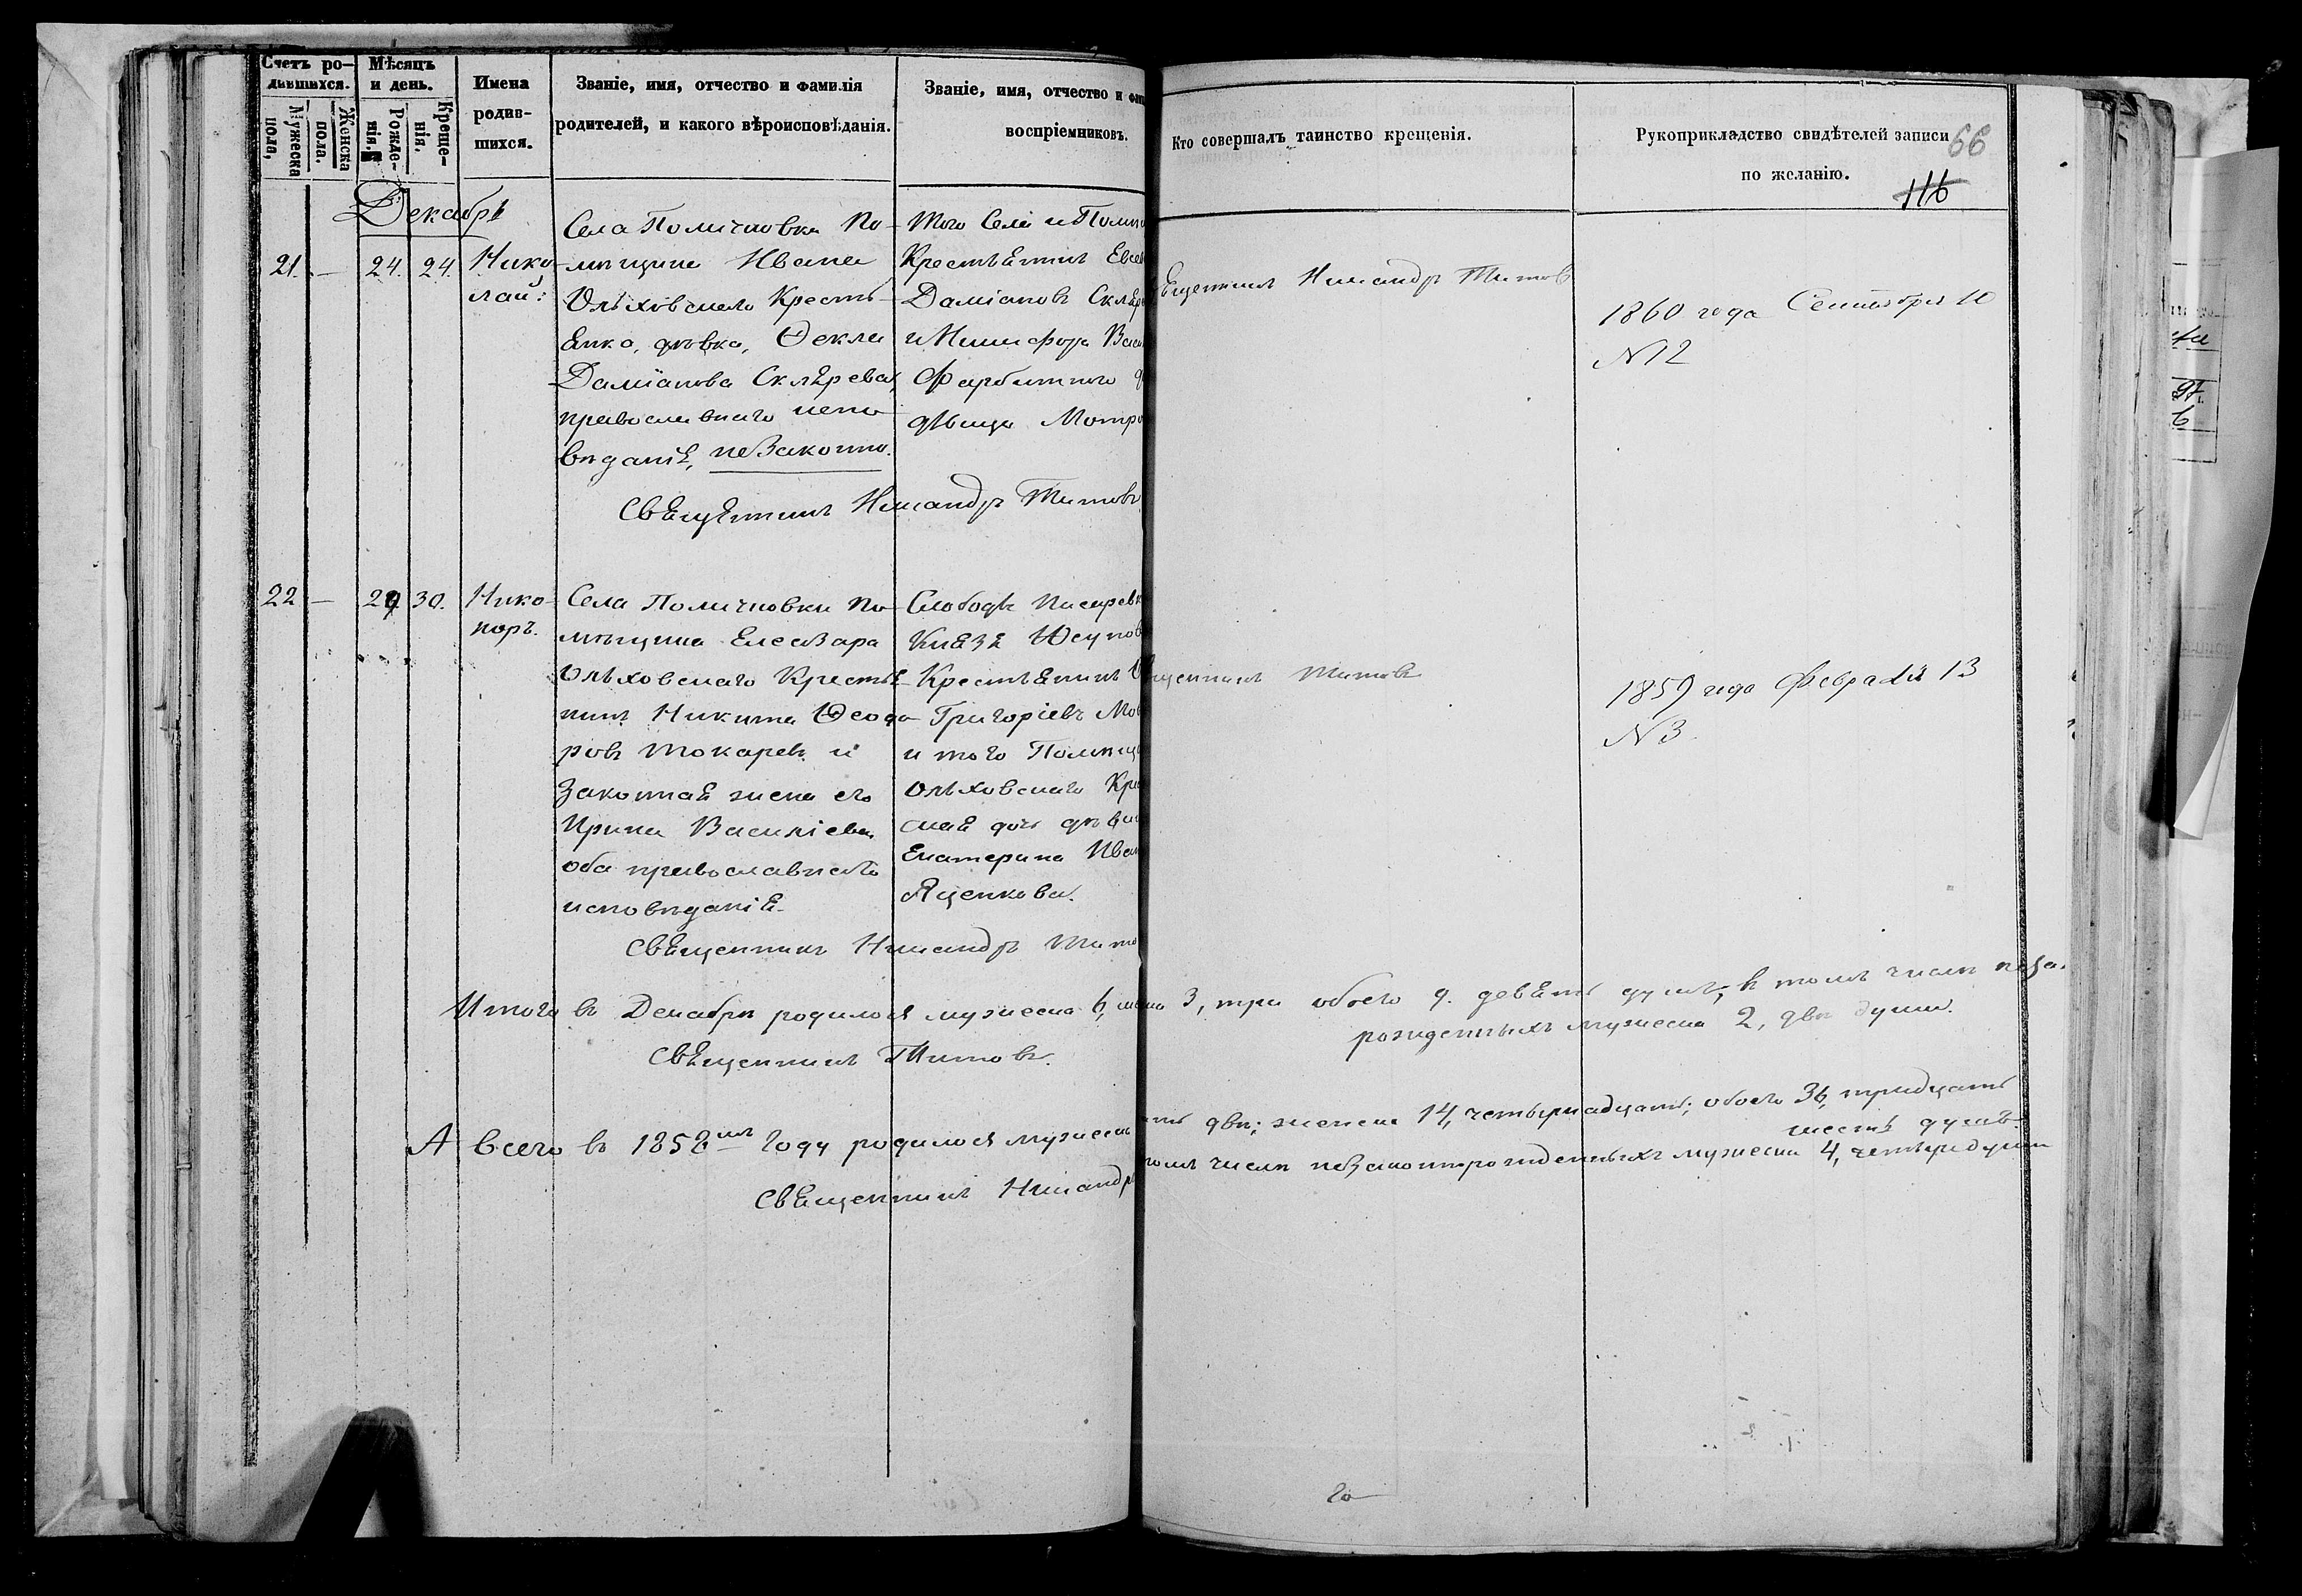 Счетъ ро-
дившихся.
Мужеска
пола,
Женска
пола.
Мѣсяцъ
и день.
Рожде-
нія.
Креще-
нія.
Имена
родив-
шихся.
Званіе, имя, отчество и фамилія
родителей, и какого вѣроисповѣданія.
Званіе, имя, отчество и фам
воспріемниковъ.
Кто совершалъ таинство крещенія.
Рукоприкладство свидѣтелей записи
по желанію.
66
116
Декабрь
21. — 24. 24.
Нико-
лай:
Села Поличковки По-
мѣщика Ивана
Ольховскаго Кресть-
янко, дѣвка, Ѳекла
Даміанова Склярева,
православнаго испо-
вѣданія, незаконно.
Того Села и Помѣ
Крестьянинъ Евсе
Даміановъ Скляр
и Никифора Васи
дѣвица Мотро
Священникъ Никандръ Титовъ
ященникъ Никандръ Титовъ
1860 года Сентября 10
N 12
22 — 29 30.
Нико-
норъ.
Села Поличковки По-
мѣщика Елеазара
Ольховскаго Крестья-
нинъ Никита Ѳеодо-
ровъ Токаревъ и
законная жена его
Ирина Василіева,
оба православнаго
исповѣданія.
Слободы Писаревк
Князя Юсупов
Крестьянинъ
Григоріевъ Мо
и того Помѣщи
Ольховскаго Кре
ская дочь дѣви
Екатерина Иван
Яценкова.
Священникъ Никандръ Тито
щенникъ Титовъ
1859 года Февраля 13
N 3.
Итого въ Декабрѣ родилося мужеска 6, женска 3, три обоего 9. девять душъ, въ томъ числѣ неза-
рожденныхъ мужеска 2, двѣ души.
Священникъ Титовъ.
А всего въ 1858мъ году родилося мужеска ать два; женска 14, четырнадцать; обоего 36, тридцать
шесть душъ.
томъ числѣ незаконнорожденныхъ мужеска 4, четыре души
Священникъ Никандръ